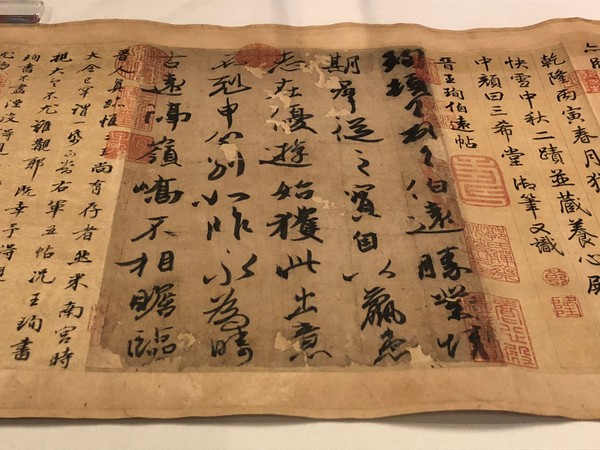 乾隆丙寅春月獲
快雪中秋二蹟並藏養心殿
中顏曰三希堂御筆又識
晉王珣伯遠帖
珣頓首頓首伯遠勝業情
期群從之寶自以羸患
志在優遊始獲此出意
不剋申分別如昨永為疇
古遠隔嶺嶠不相瞻臨
晉人真跡惟二王尚有存者然米南宮時
大令已罕謂一紙可當右軍五帖況王珣書
視大令不尤難覯耶既幸予得見
珣書不湮沒得見